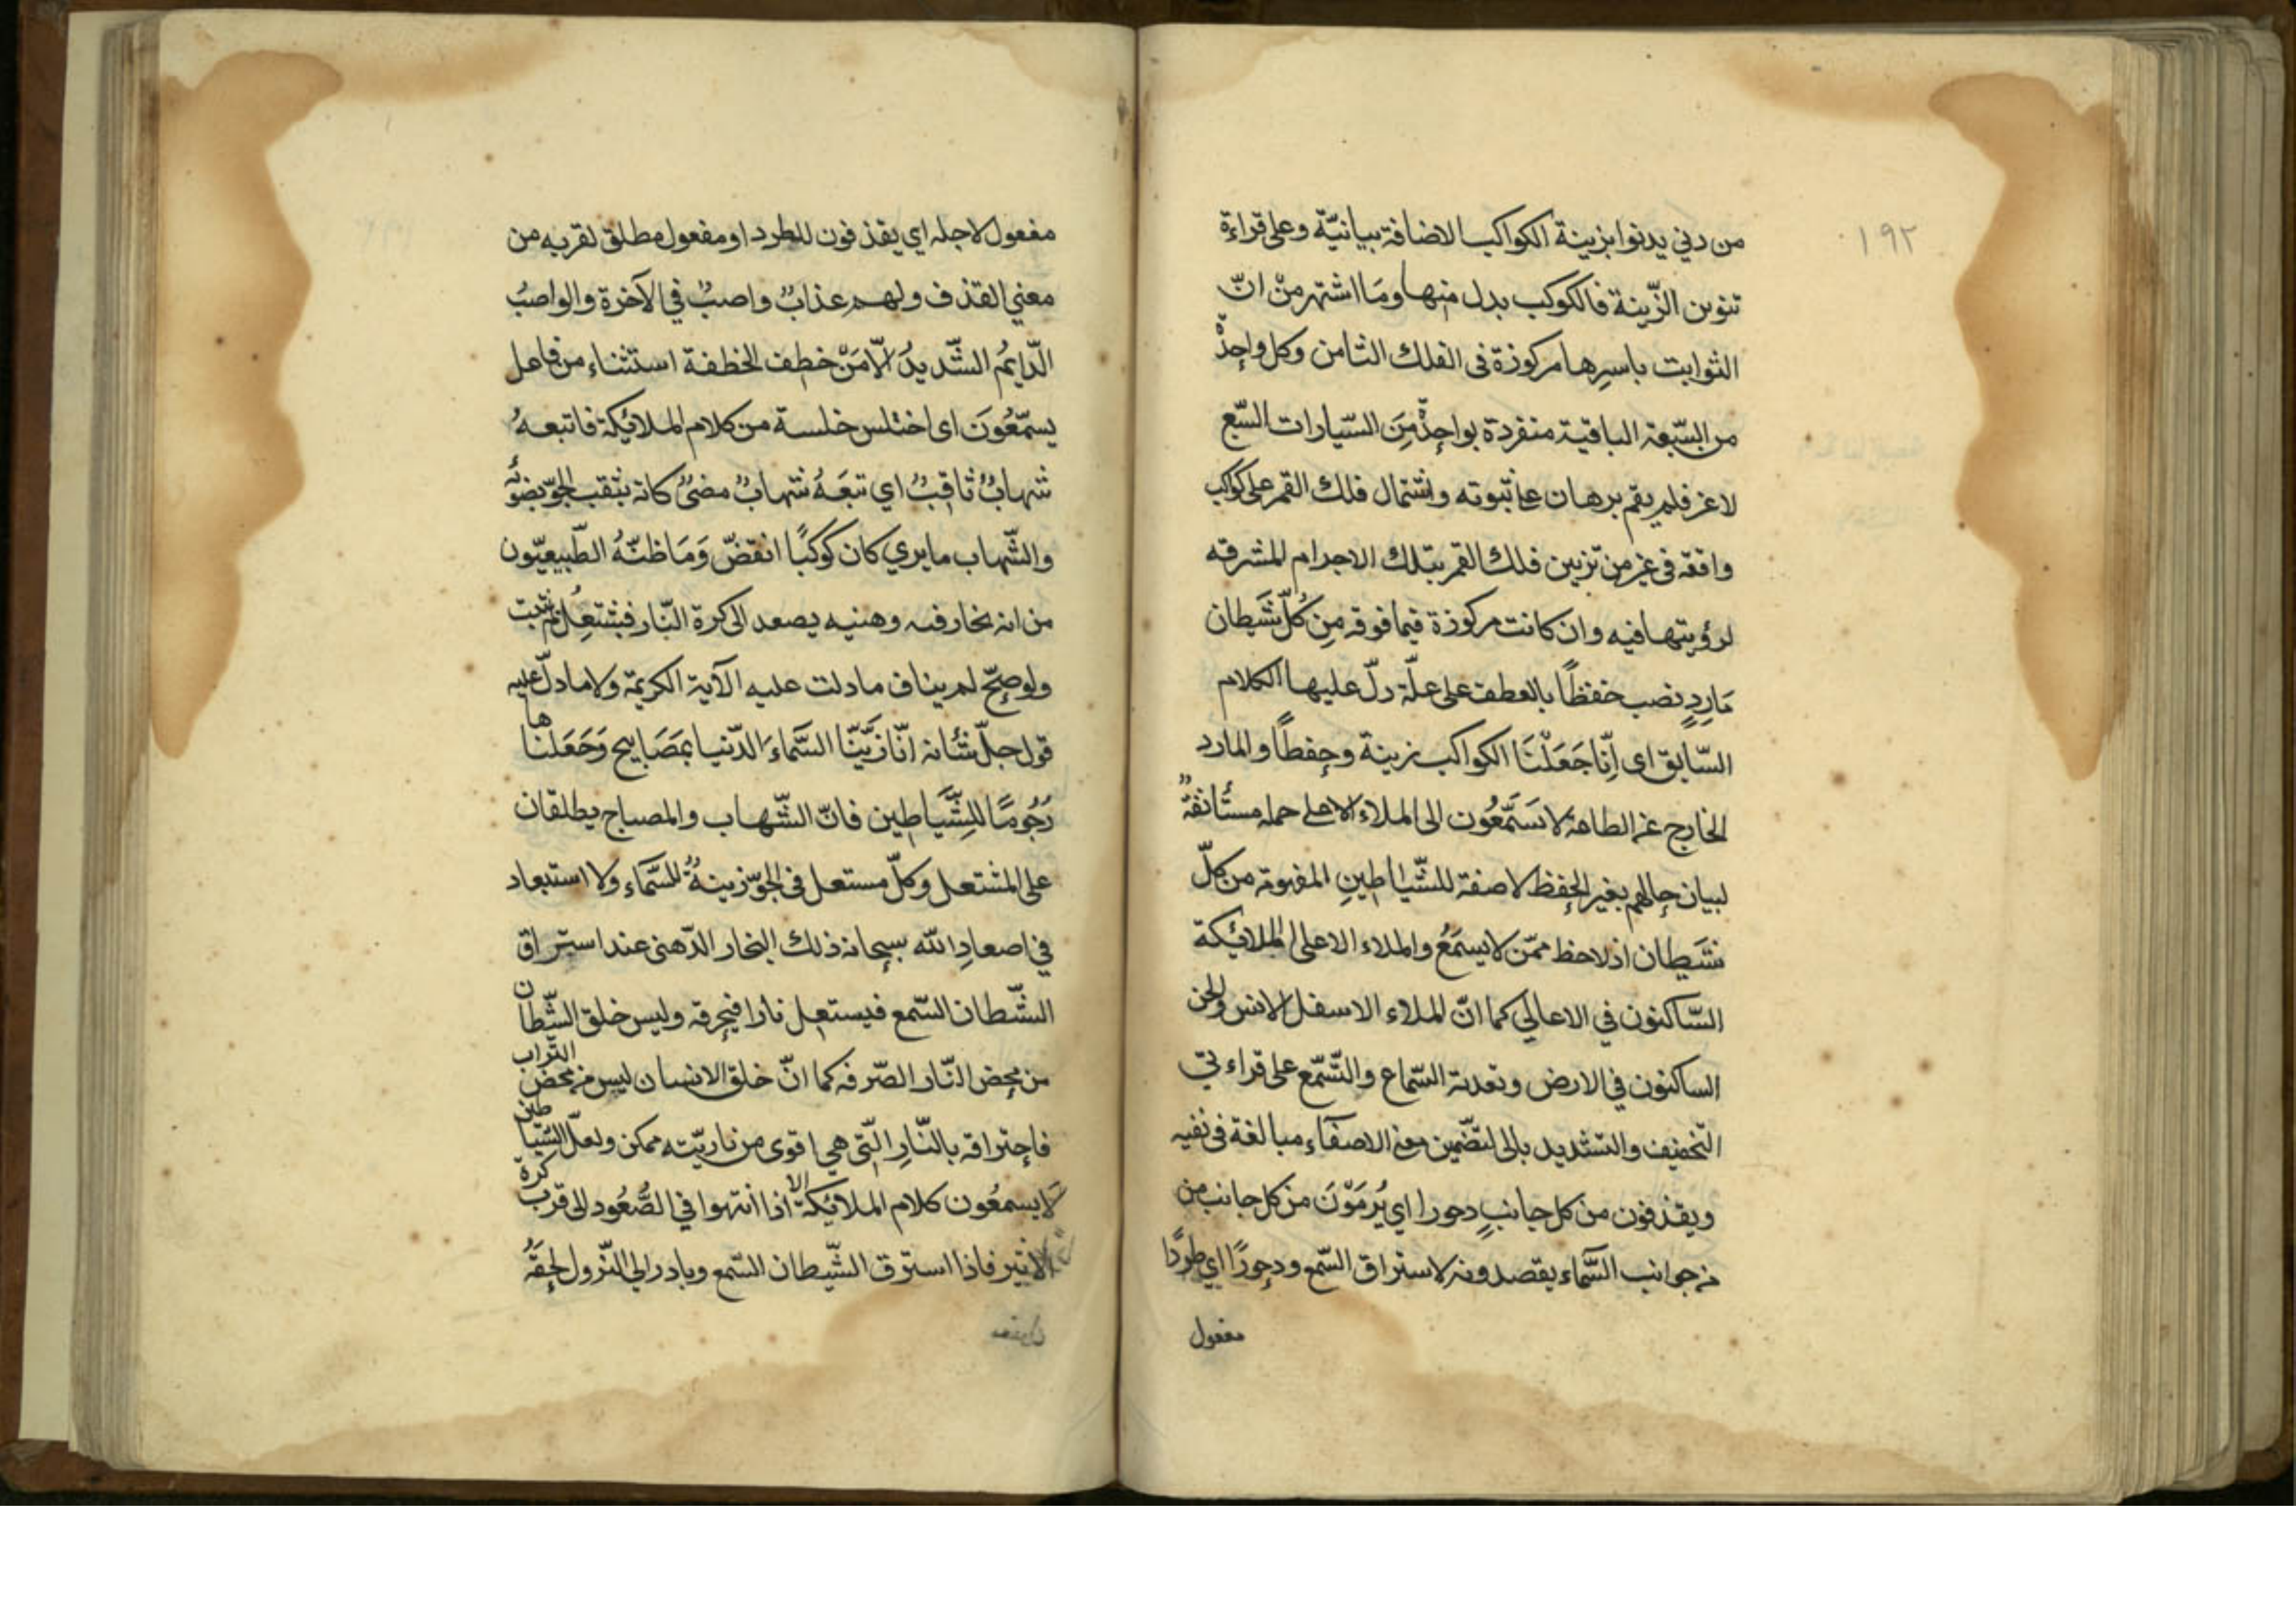 ١٩٢
من دني يدنوا بزينة الكواكب الاضافة بيانيّة وعلى قراءة
تنوين الزّينة فالكوكب بدل منها وما اشتهر منْ انّ
الثوابت باسرها مركوزة فى الفلك الثامن وكل واحدٌ
من السّبعة الباقية منفردة بواحدٌ مِنَ السّيارات السّبع
لاغر فلم يقم برهان على ثبوته واشتمال فلك القمر على كواكب
واقعة فى غير من تزيين فلك القمر بتلك الاجرام المشرقه
لرؤيتها فيه وان كانت مركوزة فيما فوقه مِن كُلّ شَيطان
مَارِدٍ نصب حفظًا بالعطف على علّة دلّ عليها الكلام
السّابق اى اِنّا جَعَلْنَا الكواكب زينة وحِفظًا والمارد
الخارج عن الطاعة لا يَسَّمَّعُون الى الملاء الاعلى حمله مستأنفةٌ
لبيان حالهم بغير الحِفظ لا صفة للشّياطينِ المفهومة من كلّ
شَيطان اذ لا حفظ ممّن لا يسمَعُ والملاء الاعلى الملائكة
السّاكنون في الاعالي كما انّ الملاء الاسفل الانس والجن
الساكنون في الارض وتعدية السّماع والتّسّمّع على قراءتي
التّخفيف والتشديد بالى لتضّمين معنى الاصغاء مبالغة فى نفيه
ويقذفون من كل جانبٍ دحورا اي يُرمَوْنَ من كل جانب من
من جوانب السَّماء يقصدونه لاستراق السّمع ودحورًا اي طردًا
مفعول
مفعول لاجله اي يقذفون للطرد او مفعول مطلق لقربه من
معني القذف ولهم عذابٌ واصبٌ في الآخرة والواصبُ
الدّايمُ الشّديدُ اِلّا مَنْ خطف الخطفة استثناء من فاعل
يسمّعُونَ اى اختلس خلسة من كلام الملائكة فاتبعهُ
شهابٌ ثاقبٌ اي تبَعَهُ شهابٌ مضىٌ كانه يثقب الجوّ بضوئه
والشّهاب ما يري كان كوكبًا انقضّ وَمَا ظنّهُ الطّبيعيّون
من انه بخار فيه وهنيه يصعد الى كرة النّار فيشتعِلُ لم يثبت
ولو صحّ لم يناف ما دلت عليه الآية الكريمة ولا ما دلّ عليه
قول جلّ شأنه اِنّا زيَّنّا السَّماءَ الدّنيا بمَصَابيح وَجَعَلناها
رُجُومًا للشّياطين فانّ الشّهاب والمصباح يطلقان
على المشتعل وكلّ مستعل فى الجوّ زينةٌ للسَّماء ولا استبعاد
في اصعادِ الله سبحانه ذلك البخار الدّهنى عند استراق
الشّيطان السّمع فيستعل نارا فيحرقه وليس خلق الشّيطان
من محض النّار الصّرفه كما انّ خلق الانسان ليس من محض التّراب
فاحتراقه بالنّارِ الّتى هي اقوى من ناريّته ممكن ولعلّ الشّياطين
لا يسمعُون كلام الملائكة الا اذا انتهوا في الصُّعُود الى قرب كرة
الاثير فاذا استرق الشّيطان السّمع وبادر الي النّزول لحِقَهُ